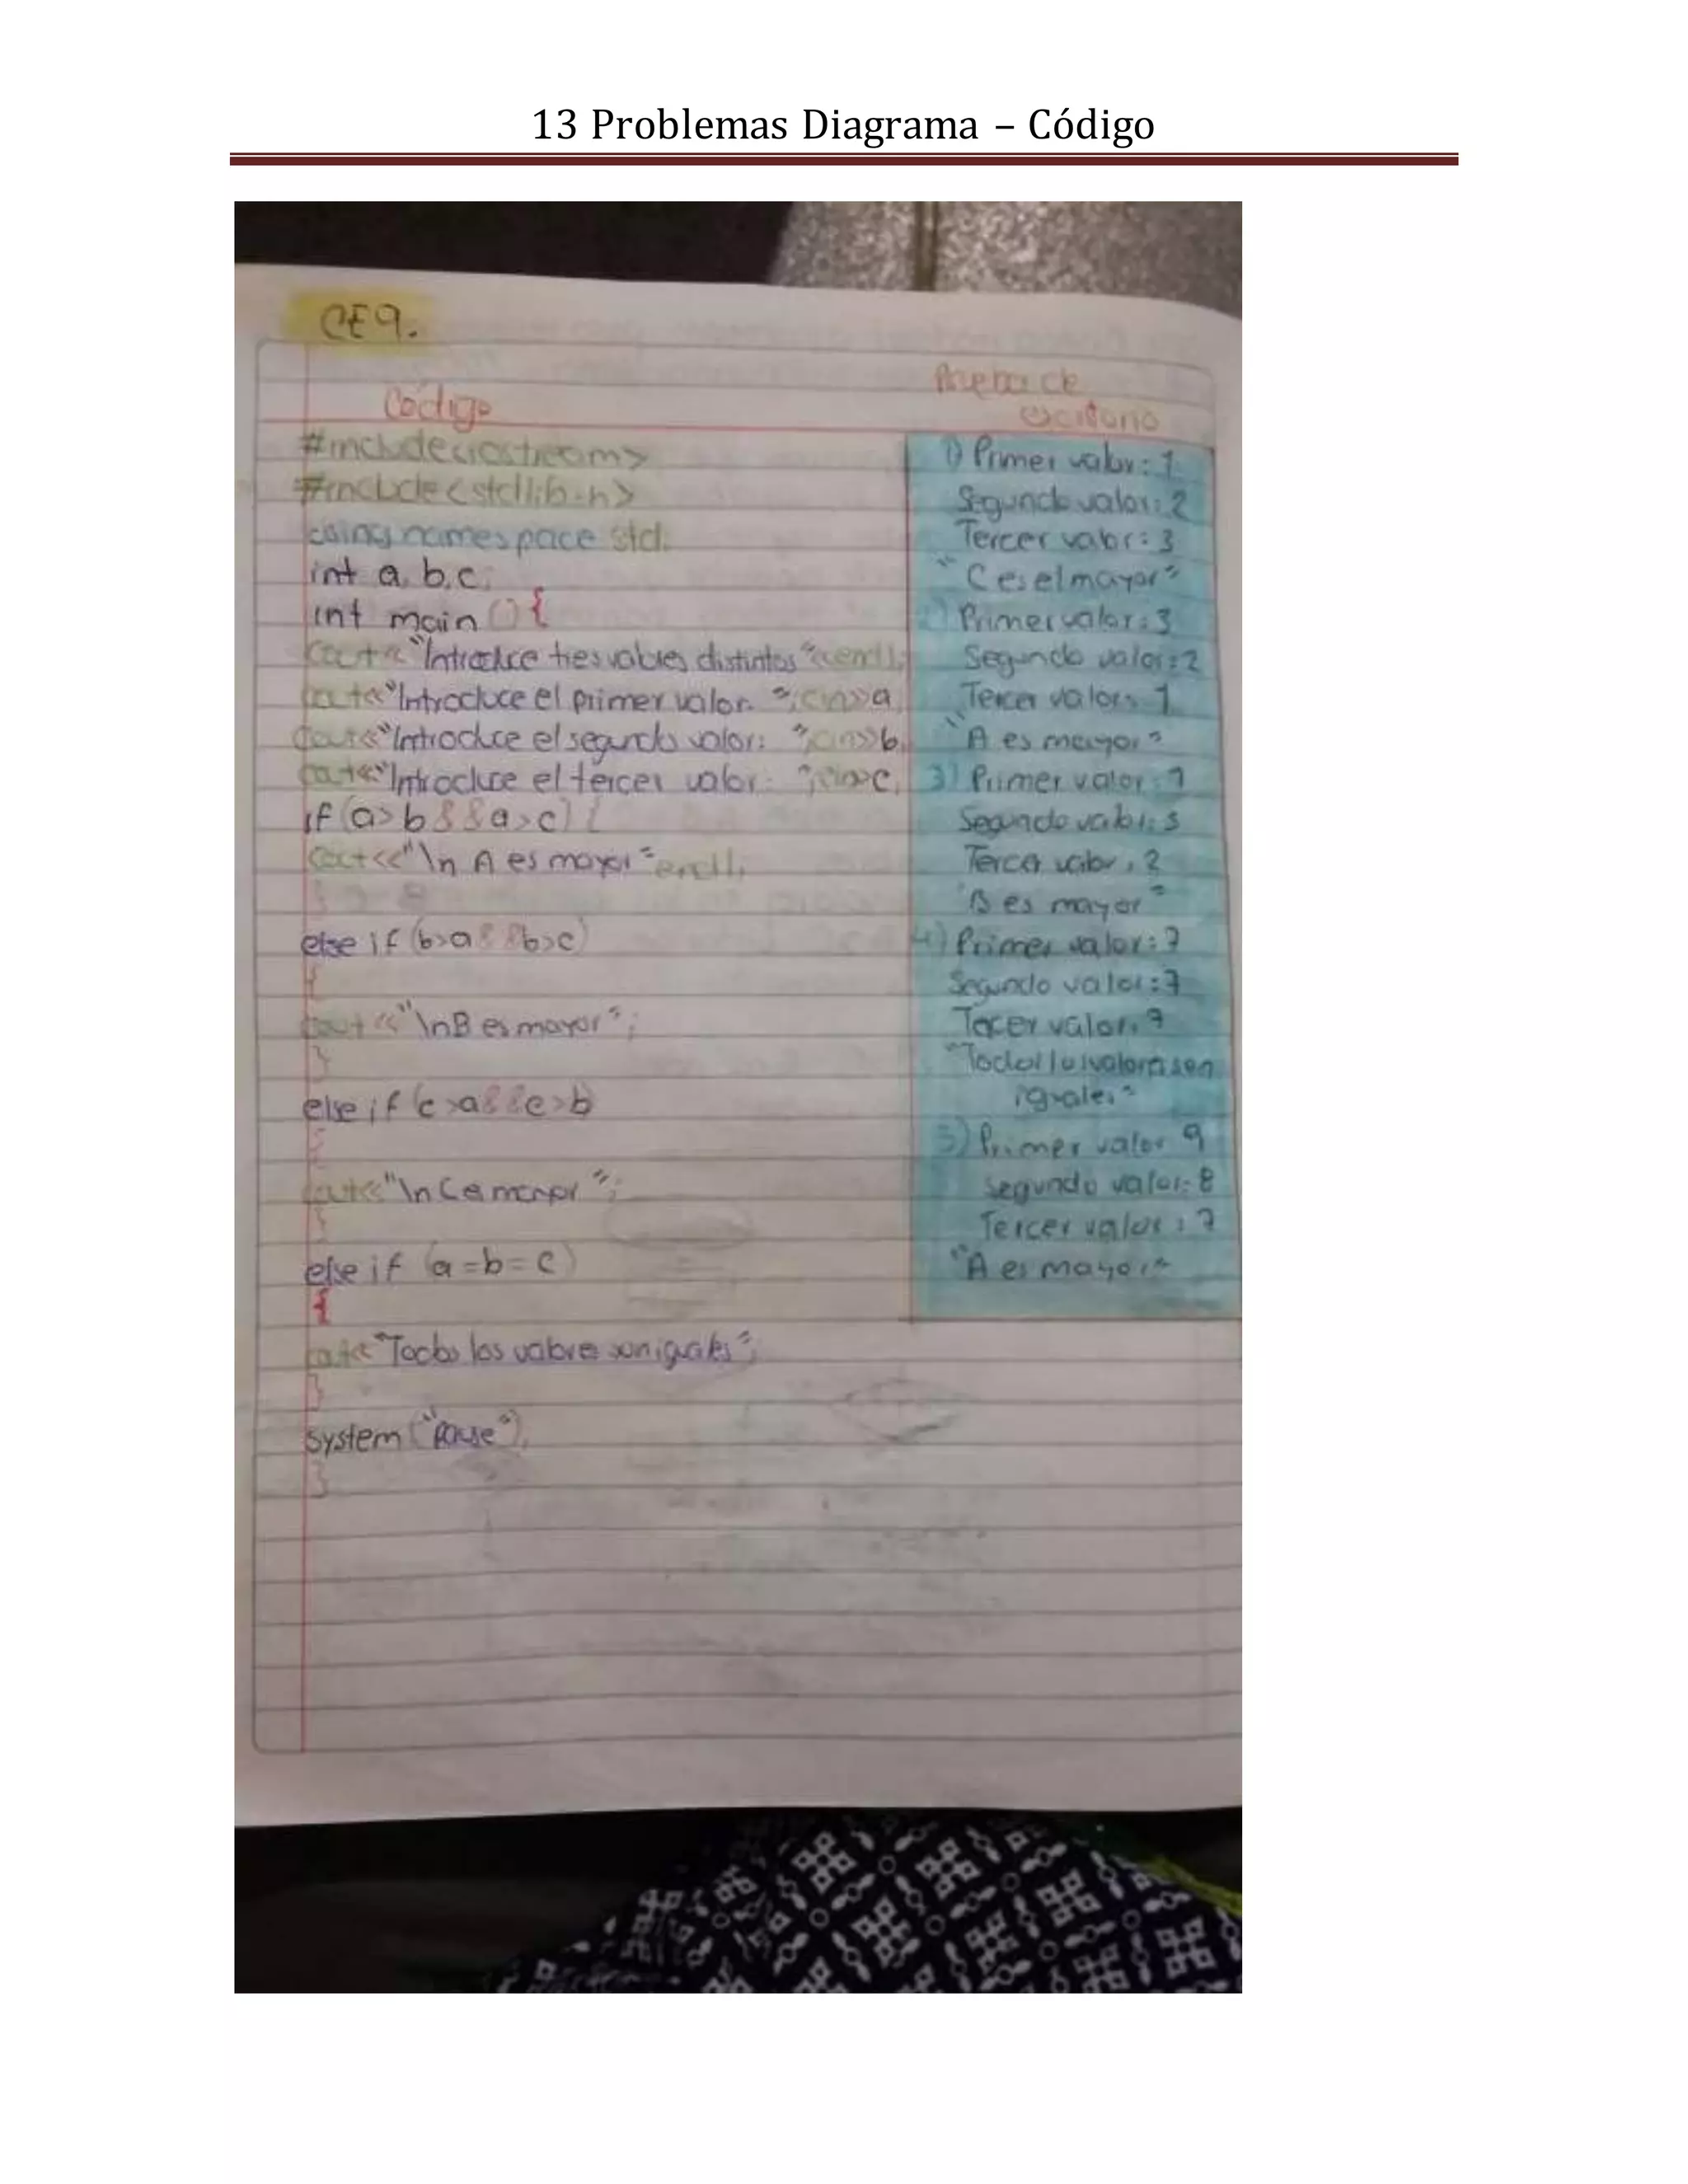 13 Problemas Diagrama – Código
CE9.
Código
#include<iostream>
#include<stdlib.h>
using namespace std;
int a, b, c;
int main () {
cout<<"Introduce tres valores distintos"<<endl;
cout<<"Introduce el primer valor: ";cin>>a;
cout<<"Introduce el segundo valor: ";cin>>b;
cout<<"Introduce el tercer valor: ";cin>>c;
if (a>b&&a>c) {
cout<<"\n A es mayor" endl;
}
else if (b>a&&b>c)
{
cout<<"\nB es mayor";
}
else if (c>a&&c>b)
{
cout<<"\n C es mayor";
}
else if (a=b=c)
{
cout<<"Todos los valores son iguales";
}
system ("Pause");
}
Prueba de
escritorio
1) Primer valor: 1
Segundo valor: 2
Tercer valor: 3
"C es el mayor"
2) Primer valor: 3
Segundo valor: 2
Tercer valor: 1
"A es mayor"
3) Primer valor: 1
Segundo valor: 3
Tercer valor: 2
"B es mayor"
4) Primer valor: 7
Segundo valor: 7
Tercer valor: 7
"Todos los valores son
iguales"
5) Primer valor 9
Segundo valor: 8
Tercer valor: 7
"A es mayor"